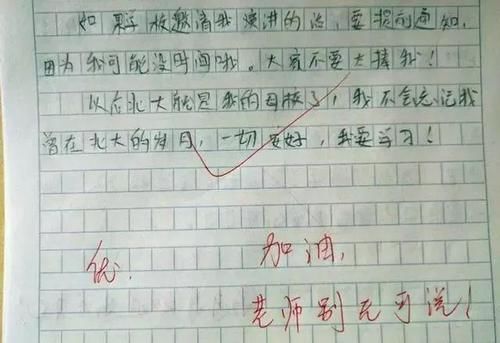 如果校邀请我演讲的话，要提前通知，
因为我可能没时间哦。大家不要太捧我！
以后北大就是我的母校了，我不会忘记我
曾在北大的岁月，一切安好，我要学习！
优. 加油，
老师别无可说！